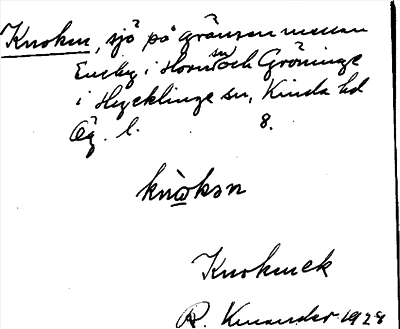 Knoken, sjö på gränsen mellan
Eneby i Horns sn och Gröninge
i Hycklinge sn, Kinda hd
Ög. l. 8.
knωkən
Knoken ek
R. Kinander 1928